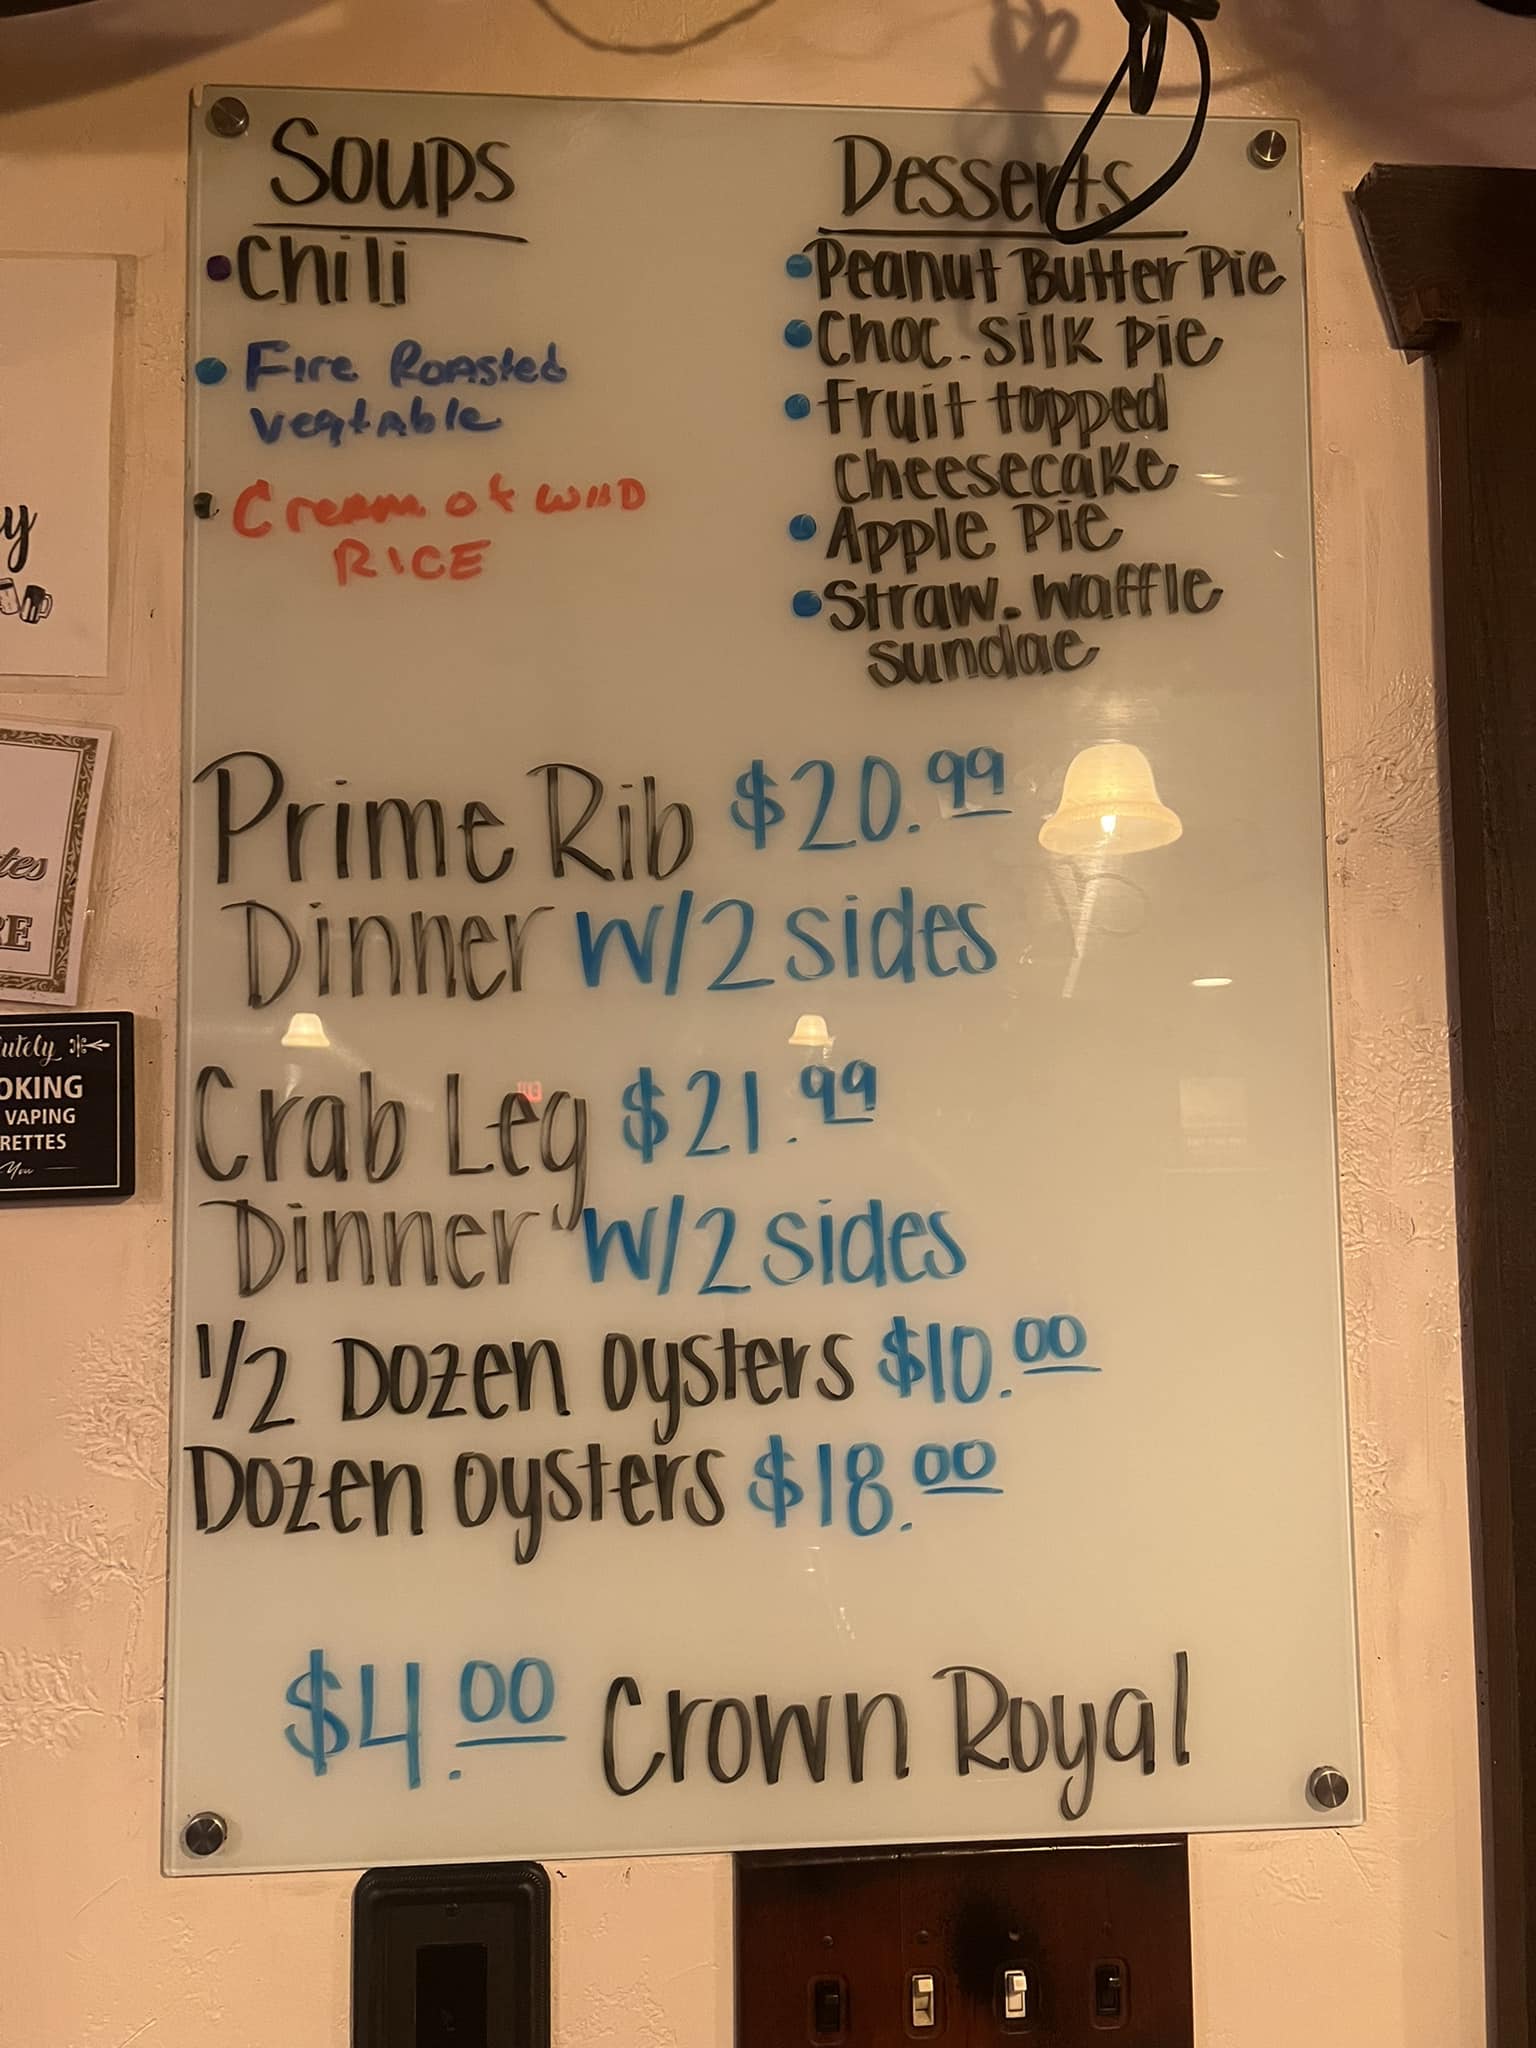 Soups
• Chili
• Fire Roasted
vegtable
• Cream of wild
RICE
Desserts
• Peanut Butter Pie
• Choc. Silk Pie
• Fruit topped
cheesecake
• Apple Pie
• Straw. waffle
sundae
Prime Rib $20.99
Dinner w/2 sides
Crab Leg $21.99
Dinner w/2 sides
1/2 Dozen oysters $10.00
Dozen oysters $18.00
$4.00 Crown Royal
VAPING
You